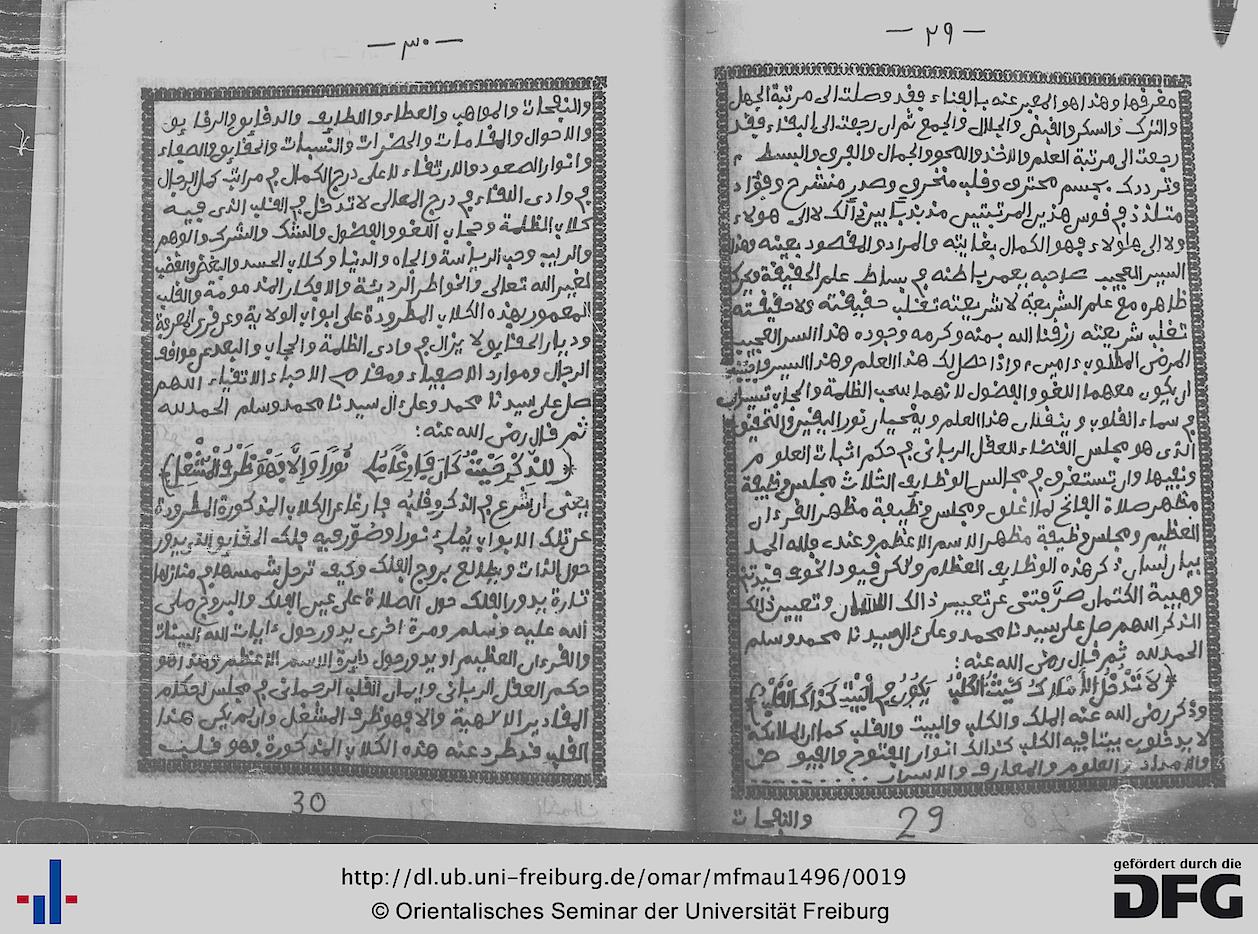 - ٢٩ -
معرفها وهذا هو المعبر عنه بالفناء فقد وصلت الى مرتبة الجهل
والترك والسكر والقبض والجلال والجمع ثم ان رجعت الى البقاء فقد
رجعت الى مرتبة العلم والاخذ والصحو والجمال والفرق والبسط
وترددك بجسم محترق وقلب منخرق وصدر منشرح وفؤاد
متلذذ فى قوس هذين المرتبتين مذبذبا بين ذالك لا الى هولاء
ولا الى هاولاء فهو الكمال بغايته والمراد والمقصود بعينه وهذا
السير العجيب صاحبه يعمر باطنه فى بساط علم الحقيقة
ظاهره مع علم الشريعة لا شريعته تغلب حقيقته ولا حقيقته
تغلب شريعته رزقنا الله بمنه وكرمه وجوده هذا السر العجيب
المرضى المطلوب ءامين واذا حصل لك هذا العلم وهذا السير
ان يكون معهما اللغو والفضول لانهما سحب الظلمة والحجاب
فى سماء القلوب وينفلت هذا العلم ويفحيان نور اليقين والتحقيق
الذى هو مجلس القضاء العقل الربانى فى حكم اثبات العلوم
ونفيها وان تستغرق فى مجالس الوظايف الثلاث مجلس وظيفة
مظهر صلاة الفاتح لما اغلق ومجلس وظيفة مظهر القرءان
العظيم ومجلس وظيفة مظهر الاسم الاعظم وعندى ولله الحمد
بيان لسان ذكر هذه الوظايف العظام ولكن قيود الخوف قيدتنى
وهيبة الكتمان صرفتنى عن تعبير ذالك اللسان وتعيين ذالك
الذكر اللهم صل على سيدنا محمد وعلى ال سيدنا محمد وسلم
الحمد لله ثم قال رضى الله عنه:
(لا تدخل الأملاك حيث الكلب يكون فى البيت كذاك القلب)
وذكر رضى الله عنه الملك والكلب والبيت والقلب كما ان الملايكة
لا يدخلون بيتا فيه الكلب كذالك انوار الفتوح والفيوض
والامداد والعلوم والمعارف والاسرار
والنفحات
29
- ٣٠ -
والنفحات والمواهب والعطاء واللطايف والدقايق والرقايق
والاحوال والمقامات والحضرات والنسبات والحقايق والصفاء
وانوار الصعود والارتقاء للاعلى درج الكمال فى مراتب كمل الرجال
فى وادى اللقاء فى درج المعالى لا تدخل فى القلب الذى فيه
كلاب الظلمة وحجاب اللغو والفضول والشك والشرك والوهم
والريب وحب الرياسة والجاه والدنيا وكلاب الحسد والبغض والغضب
لغير الله تعالى والخواطر الرديئة والافكار المذمومة والقلب
المعمور بهذه الكلاب المطرودة على ابواب الولاية وعن قرى المعرفة
وديار الحقايق لا يزال فى وادى الظلمة والحجاب والبعد عن موافقة
الرجال وموارد الاصفياء ومقام الاحباء الاتقياء اللهم
صل على سيدنا محمد وعلى ال سيدنا محمد وسلم الحمد لله
ثم قال رضى الله عنه:
(للذكر حيث كان فارغا ملى نورا وإلا فهو ظرف المشغل)
يعنى ان شرع فى الذكر وقلبه فارغا عن الكلاب المذكورة المطرودة
عن تلك الابواب يملئ نورا وضوّر فيه فلك الحقايق التى يدور
حول الذات ويطالع بروج الفلك وكيف ترحل شمسها فى منازلها
تارة يدور الفلك حول الصلاة على عين الفلك والبروج صلى
الله عليه وسلم ومرة اخرى يدور حول ءايات الله البينات
والقرءان العظيم او يدور حول دايرة الاسم الاعظم وهذا هو
حكم العقل الربانى وايمان القلب الرحمانى فى مجلس احكام
المقادير الالهية والا فهو ظرف المشغل وان لم يكن هذا
القلب قد طرد عنه هذه الكلاب المذكورة فهو قلب
30
http://dl.ub.uni-freiburg.de/omar/mfmau1496/0019
© Orientalisches Seminar der Universität Freiburg
gefördert durch die
DFG